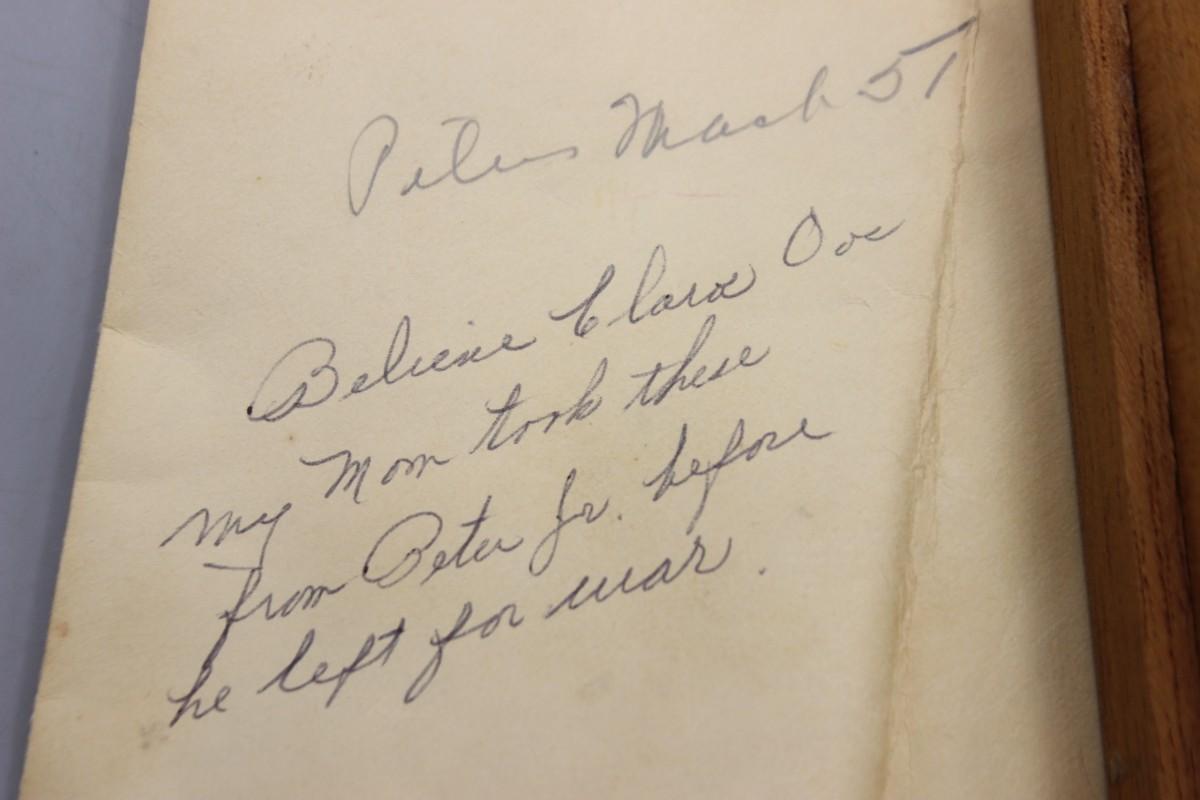 Peters March 51
Believe Clara Ove
my Mom took these
from Peter Jr. before
he left for war.